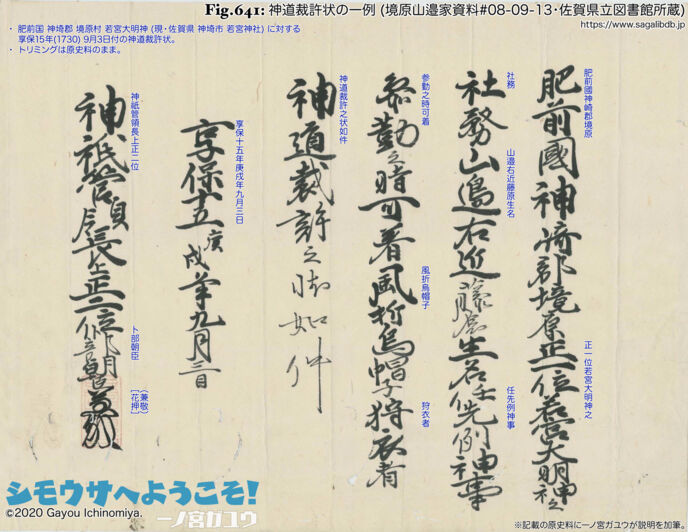 Fig.641: 神道裁許状の一例 (境原山邉家資料#08-09-13・佐賀県立図書館所蔵)
https://www.sagalibdb.jp
・ 肥前国 神埼郡 境原村 若宮大明神 (現・佐賀県 神埼市 若宮神社) に対する
享保15年(1730) 9月3日付の神道裁許状。
・ トリミングは原史料のまま。
肥前國神崎郡境原正一位若宮大明神之
肥前國神崎郡境原
正一位若宮大明神之
社務山邉右近藤原生名任先例神事
社務
山邉右近藤原生名
任先例神事
参勤之時可着風折烏帽子狩衣者
参勤之時可着
風折烏帽子
狩衣者
神道裁許之状如件
神道裁許之状如件
享保十五庚戌年九月三日
享保十五年庚戌年九月三日
神祇管領長上正二位卜部朝臣
神祇管領長上正二位
卜部朝臣
(兼敬)
[花押]
シモウサへようこそ!
©2020 Gayou Ichinomiya.
一ノ宮ガユウ
※記載の原史料に一ノ宮ガユウが説明を加筆。